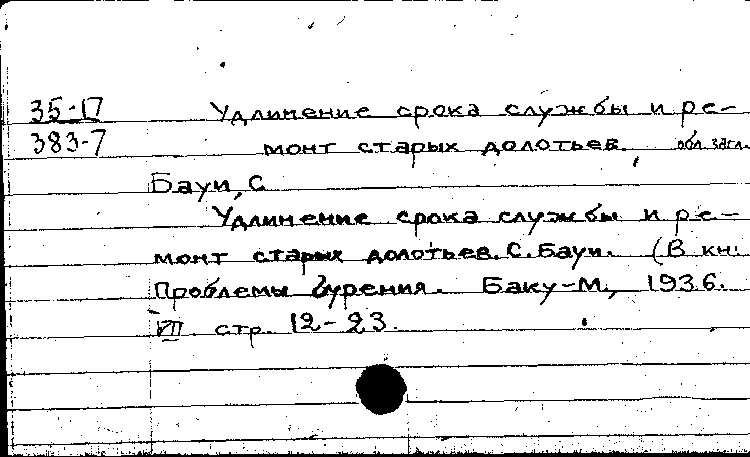 35-17 Удлинение срока службы и ре-
383-7 монт старых долотьев. обл. загл.
Бауи, С
Удлинение срока службы и ре-
монт старых долотьев. С. Бауи. (В кн:
Проблемы бурения. Баку-М., 1936.
VII стр. 12-23.